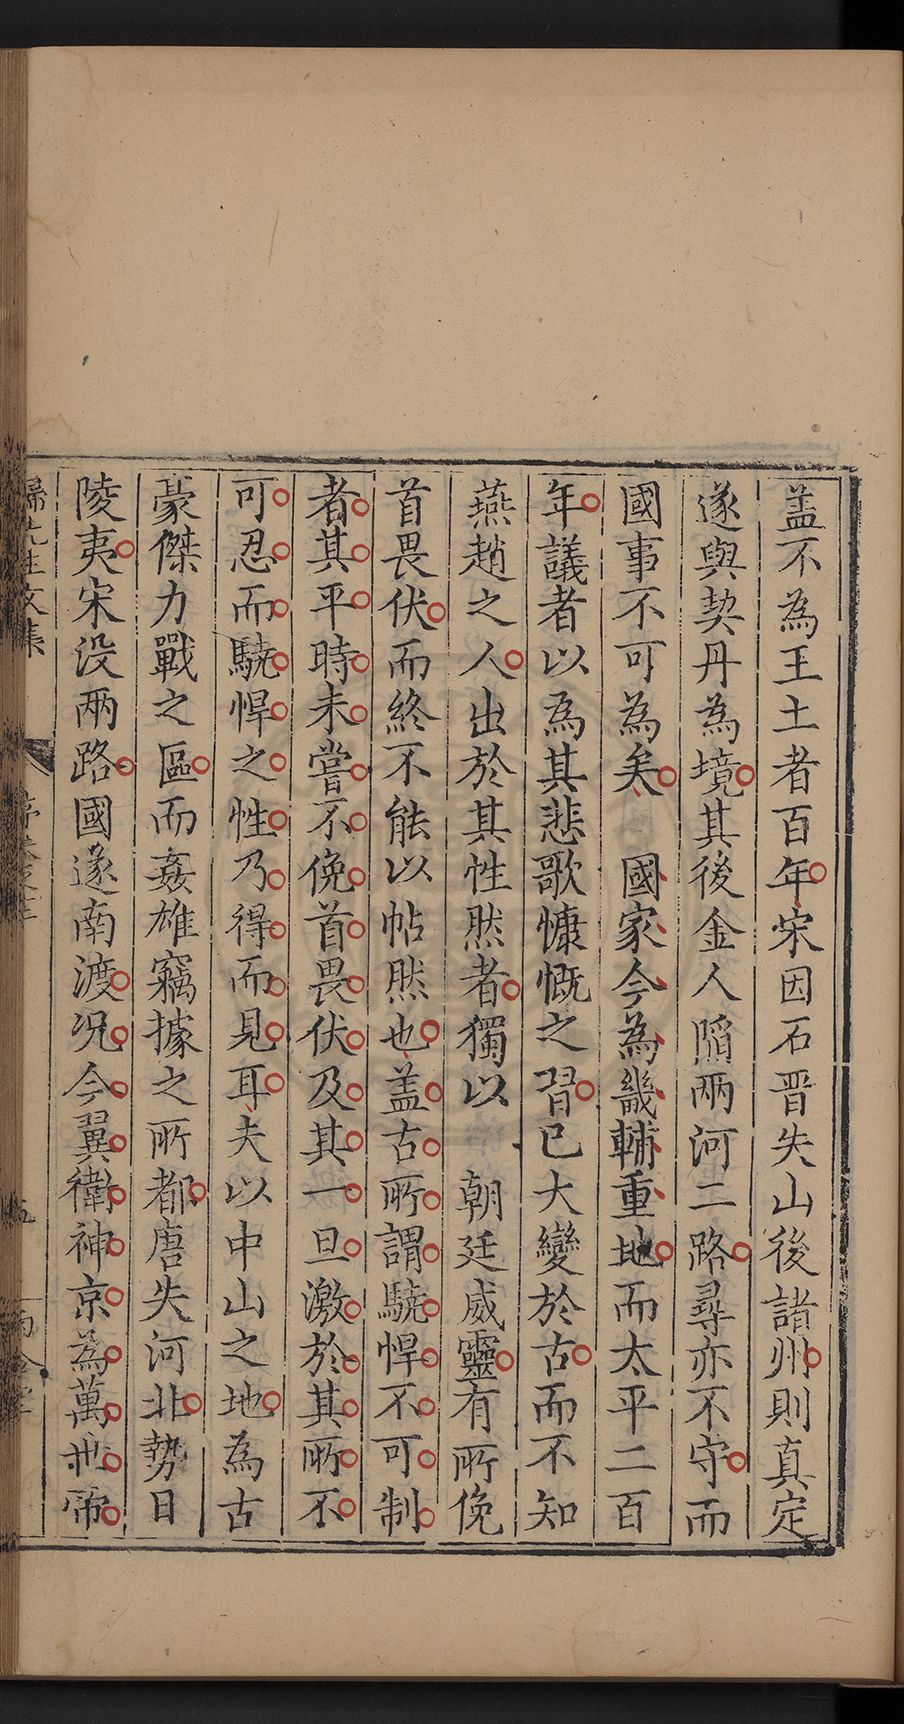 盖不為王土者百年宋因石晋失山後諸州則真定
遂與契丹為境其後金人陷兩河二路尋亦不守而
國事不可為矣　國家今為畿輔重地而太平二百
年議者以為其悲歌慷慨之習已大變於古而不知
燕趙之人出於其性然者獨以　朝廷威靈有所俛
首畏伏而終不能以帖然也盖古所謂驍悍不可制
者其平時未嘗不俛首畏伏及其一旦激於其所不
可忍而驍悍之性乃得而見耳夫以中山之地為古
豪傑力戰之區而姦雄竊據之所都唐失河北勢日
陵夷宋没兩路國遂南渡况今翼衛神京為萬世帝